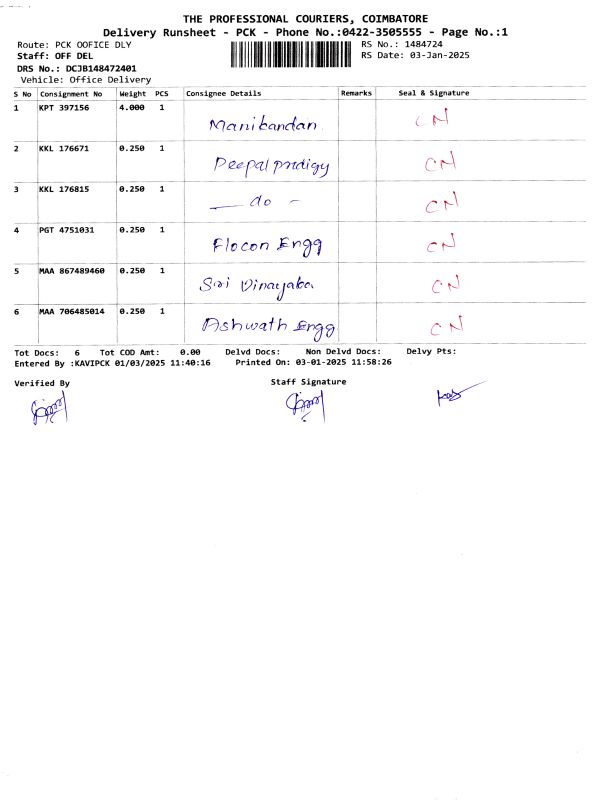 THE PROFESSIONAL COURIERS, COIMBATORE
Delivery Runsheet - PCK - Phone No.:0422-3505555 - Page No.:1
Route: PCK OOFICE DLY RS No.: 1484724
Staff: OFF DEL RS Date: 03-Jan-2025
DRS No.: DCJB148472401
Vehicle: Office Delivery
S No Consignment No Weight PCS Consignee Details Remarks Seal & Signature
1 KPT 397156 4.000 1 Manikandan CN
2 KKL 176671 0.250 1 Deepal prodigy CN
3 KKL 176815 0.250 1 — do — CN
4 PGT 4751031 0.250 1 Flocon Engg CN
5 MAA 867489460 0.250 1 Sri Vinayaka CN
6 MAA 706485014 0.250 1 Ashwath Engg CN
Tot Docs: 6 Tot COD Amt: 0.00 Delvd Docs: Non Delvd Docs: Delvy Pts:
Entered By :KAVIPCK 01/03/2025 11:40:16 Printed On: 03-01-2025 11:58:26
Verified By Staff Signature